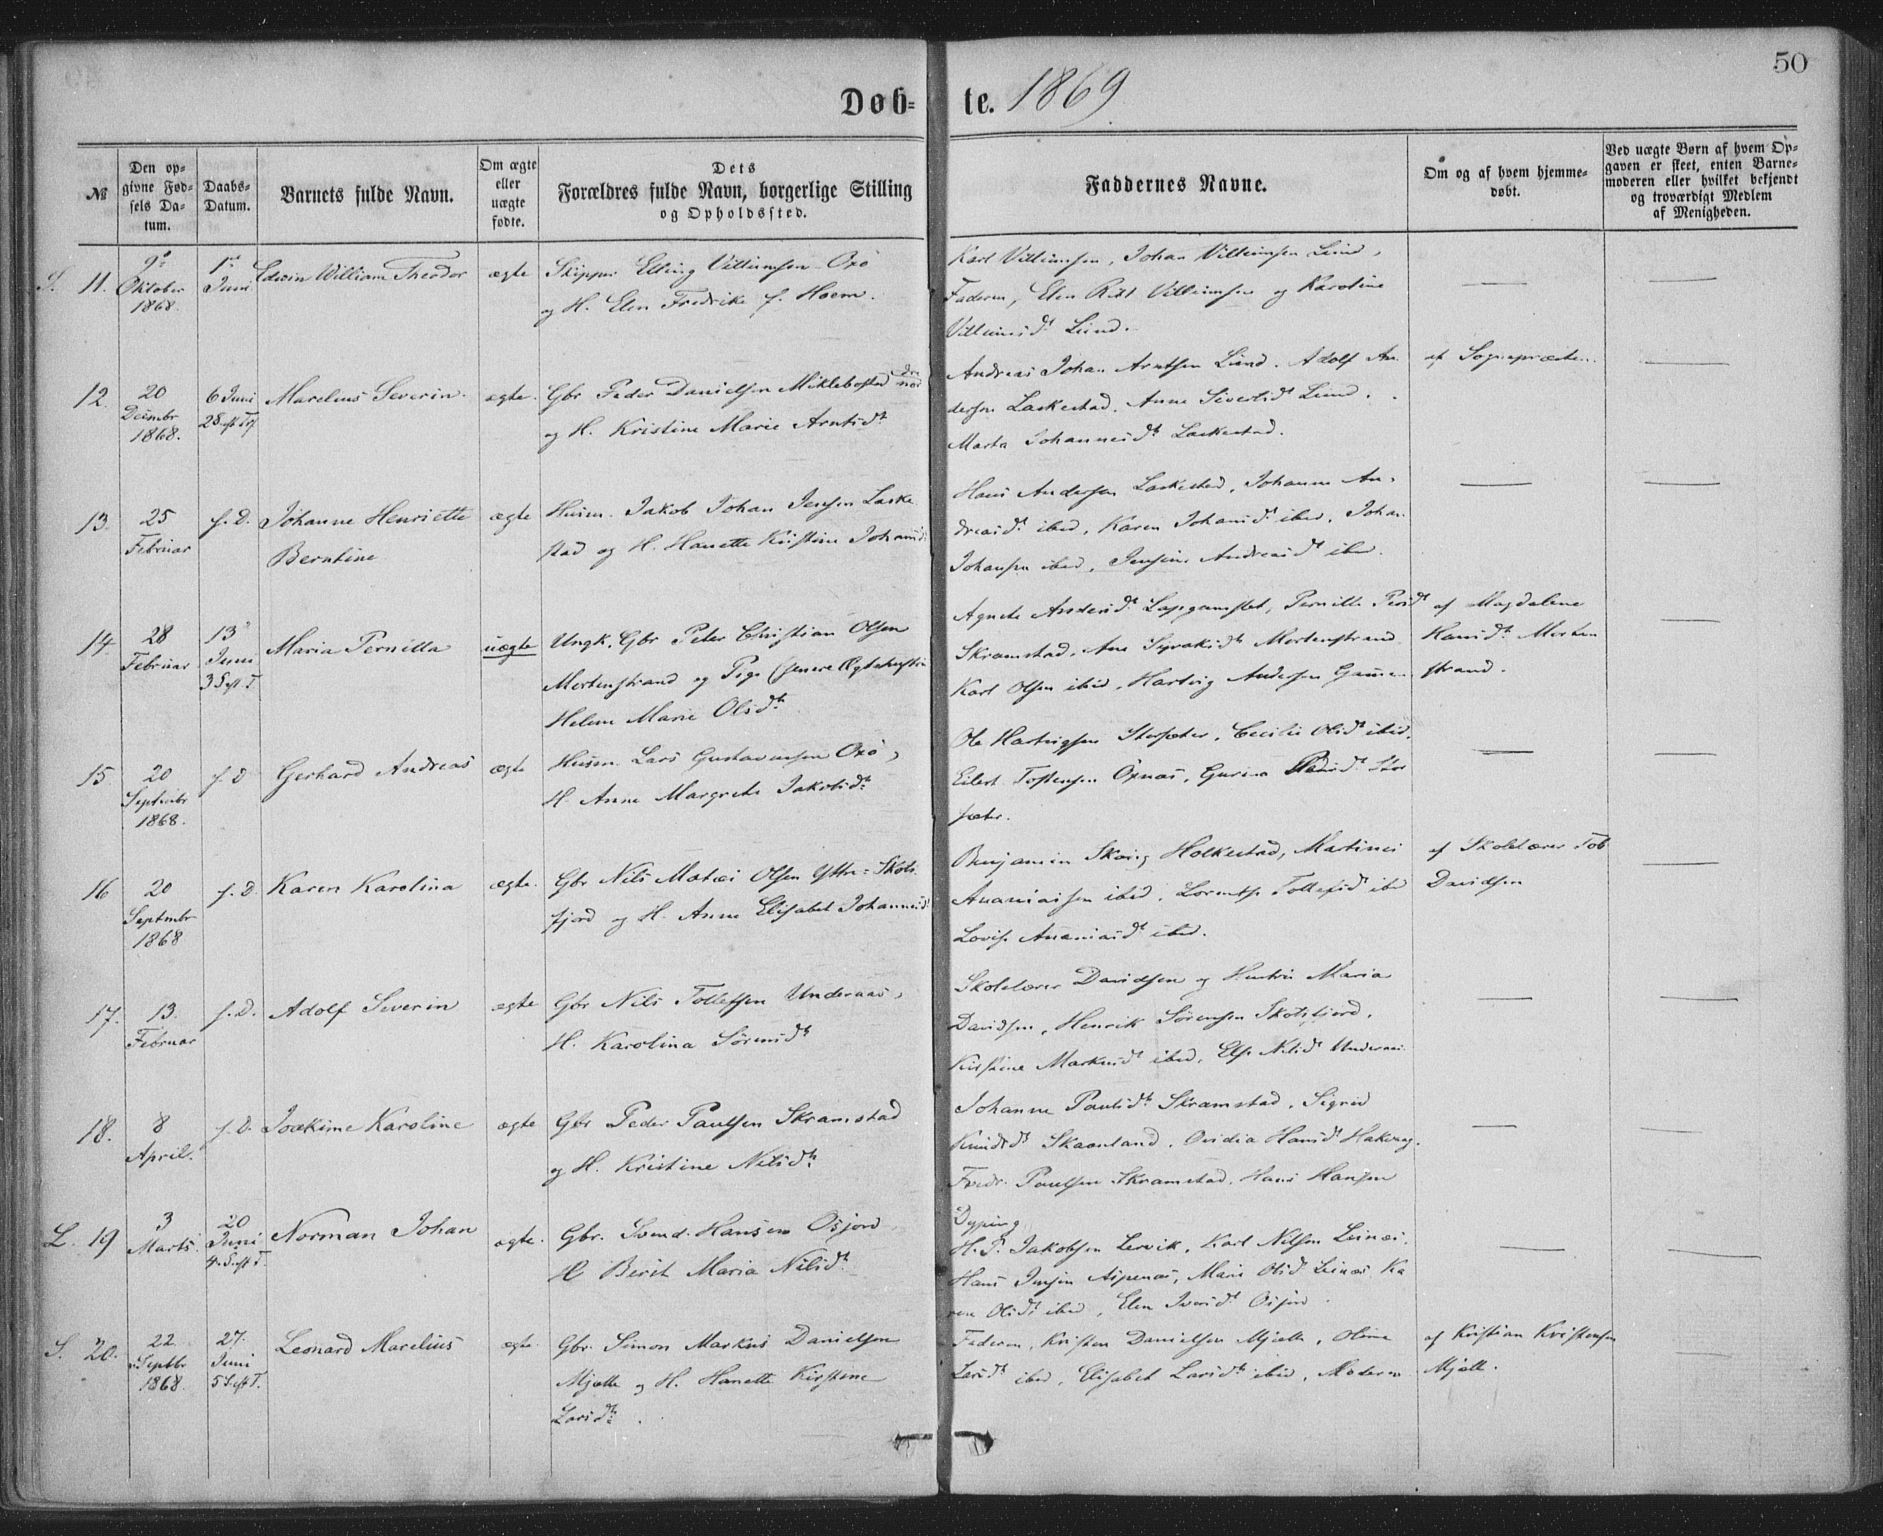 50
Døb- te. 1869
№
Den opgivne Fødsels Datum.
Daabs-Datum.
Barnets fulde Navn.
Om ægte eller uægte fødte.
Dets Forældres fulde Navn, borgerlige Stilling og Opholdssted.
Faddernes Navne.
Om og af hvem hjemmedøbt.
Ved uægte Børn af hvem Opgaven er skeet, enten Barnemoderen eller hvilket bekjendt og troværdigt Medlem af Menigheden.
S. 11. Oktober 1868. 1ste Juni Edvin William Theodor ægte Skipper Villumsen Oxø
og H. Elen Fredrike f. Hoem.
Karl Villumsen, Johan Villumsen Lund,
Faderen, Elen Villumsen og Karoline
Villumsdt Lund.
12. 20 Decembr 1868. 6 Juni 2 S. eft Trf Marelius Severin. ægte. Gbr Peder Danielsen Miklebostad
og H. Kristine Marie Arntsdt
Andreas Johan Arntsen Lund. Adolf An-
dersen Laskestad. Anne Sivertsdt Lund.
Marta Johannesdt Laskestad.
af Sognepræsten.
13. 25 Februar f. D. Johanne Henriette Berntine ægte Husm. Jakob Johan Jensen Laske-
stad og H. Hanette Kristine Johansdt
Hans Andersen Laskestad, Johanne An-
dreasdt ibid, Karen Johansdt ibid, Johan
Johansen ibid, Jensine Andreasdt ibid.
14. 28 Februar 13 Juni 3 S eft T. Maria Pernilla uægte Ungk. Gbr Peter Christian Olsen
Mortenstrand og Pige (senere Ægtehustru
Helene Marie Olsdt
Agnete Andersdt Pernille Persdt
Skramstad, Ane Mortenstrand
Karl Olsen ibid, Hartvig Andersen
af Magdalene
Hansdt Morten
strand.
15. 20 Septembr 1868. f. D Gerhard Andreas ægte Husm. Lars Gustavusen Oxø,
H. Anne Margrete Jakobsdt
Ole Hartvigsen Storsæter, Cecilie Olsdt ibid.
Eilert Tostensen Oxnæs, Gurina Stor
sæter.
16 20 Septembr 1868 f. D. Karen Karolina ægte. Gbr Nils Matæi Olsen Ytre-Skots
fjord og H. Anne Elisabet Johannesdt
Benjamin Holkestad, Martines
Ananiassen ibid. Tollefsdt ibid
Lovise Ananiasdt ibid.
af Skolelærer Tob
Davidsen
17. 13. Februar f. D. Adolf Severin ægte Gbr Nils Tollefsen Underaas,
H. Karolina Sørensdt
Skolelærer Davidsen og Hustru Maria
Davidsen, Henrik Sørensen Skotsfjord,
Kirstine Markusdt ibid, Else Nilsdt Underaas.
18. 8 April. f. D. Joakime Karoline ægte Gbr Peder Paulsen Skramstad
og H. Kristine Nilsdt
Johanne Paulsdt Skramstad, Sigrid
Knudsdt Skaanland, Ovidia Hansdt
Fredr. Paulsen Skramstad. Hans Hansen
Dyping
L. 19 3 Marts. 20 Juni 4. S. eft T. Norman Johan ægte. Gbr. Svend Hansen Osjord
H Berit Maria Nilsdt
H. P. Jakobsen Lervik, Karl Nilsen Leinæs.
Hans Jensen Aspenæs, Marie Olsdt Leinæs Ka
ren Olsdt ibid, Elen Iversdt Osjord.
S. 20. 22 Septbr 1868. 27. Juni 5 S. eft T. Leonard Marelius ægte. Gbr. Simon Markus Danielsen
Mjelle og H. Hanette Kirstine
Larsdt.
Faderen, Kristen Danielsen Mjelle, Oline
Larsdt ibid, Elisabet Larsdt ibid, Moderen
af Kristian Kristensen
Mjelle.